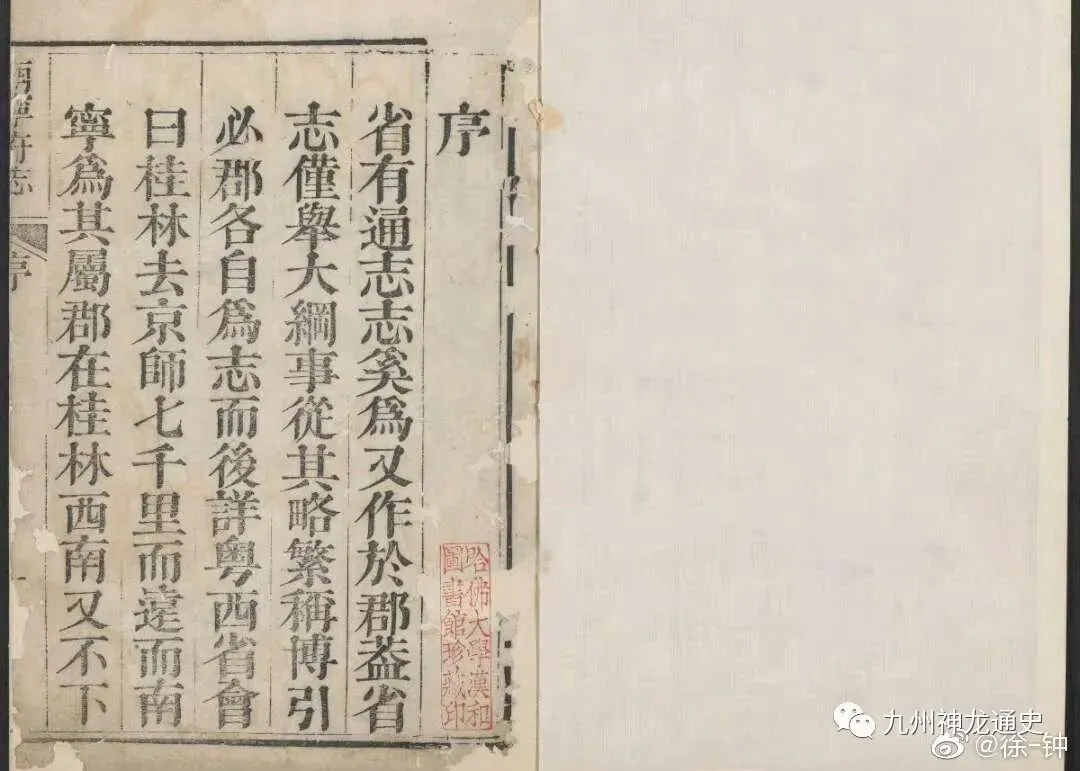 序
省有通志志奚爲又作於郡葢省
志僅舉大綱事從其略繁稱博引
必郡各自爲志而後詳粵西省會
曰桂林去京師七千里而遠而南
寧爲其屬郡在桂林西南又不下
南寧府志
序
哈佛大學漢和
圖書館珍藏印
九州神龙通史
@徐-钟